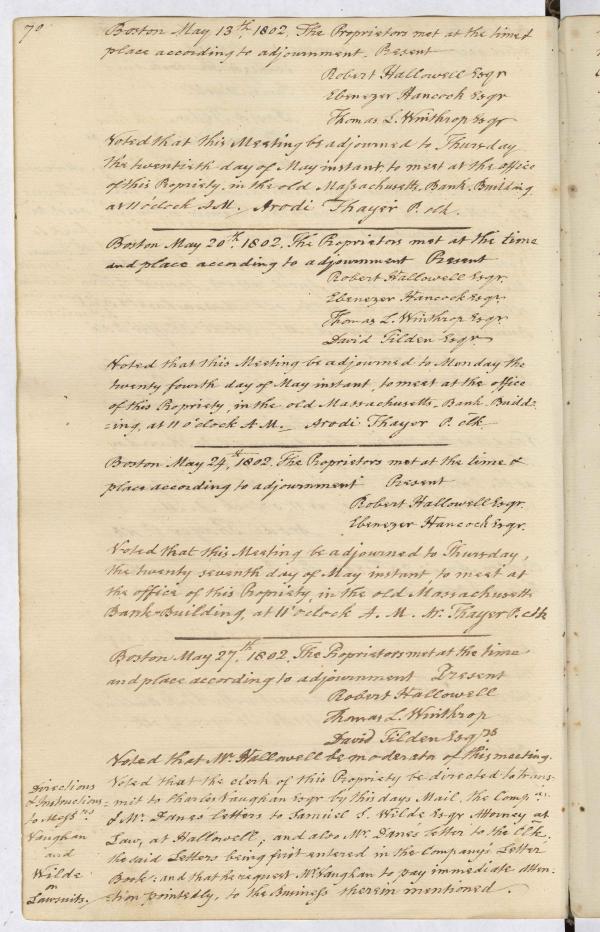 70
Boston May 13th. 1802. The Proprietors met at the time &
place according to adjournment. Present
Robert Hallowell Esqr
Ebenezer Hancock Esqr
Thomas L. Winthrop Esqr
Voted that this Meeting be adjourned to Thursday
the twentieth day of May instant, to meet at the office
of this Propriety, in the old Massachusetts Bank-Building
at 11 o'clock A.M. Arodi Thayer P. clk.
Boston May 20th. 1802. The Proprietors met at the time
and place according to adjournment Present
Robert Hallowell Esqr.
Ebenezer Hancock Esqr.
Thomas L. Winthrop Esqr.
David Tilden Esqr
Voted that this Meeting be adjourned to Monday the
twenty fourth day of May instant, to meet at the office
of this Propriety, in the old Massachusetts-Bank-Build=
=ing, at 11 o'clock A.M. Arodi Thayer P. clk.
Boston May 24th. 1802. The Proprietors met at the time &
place according to adjournment Present
Robert Hallowell Esqr.
Ebenezer Hancock Esqr.
Voted that this Meeting be adjourned to Thursday,
the twenty seventh day of May instant, to meet at
the office of this Propriety, in the old Massachusetts
Bank-Building, at 11 o'clock A. M. Ar. Thayer P. clk
Boston May 27th. 1802. The Proprietors met at the time
and place according to adjournment Present
Robert Hallowell
Thomas L. Winthrop
David Tilden Esqrs
Voted that Mr. Hallowell be moderator of this meeting.
Voted that the clerk of this Propriety be directed to trans=
=mit to Charles Vaughan Esqr by this days Mail, the
& Mr. Danes Letters to Samuel S. Wilde Esqr Attorney at
Law, at Hallowell; and also Mr. Danes Letter to the Clk.
the said Letters being first entered in the Company's Letter
Book: and that he request Mr. Vaughan to pay immediate atten=
=tion pointedly, to the Business therein mentioned.
Directions
& Instructions
to Messrs
Vaughan
and
Wilde
on
Lawsuits.